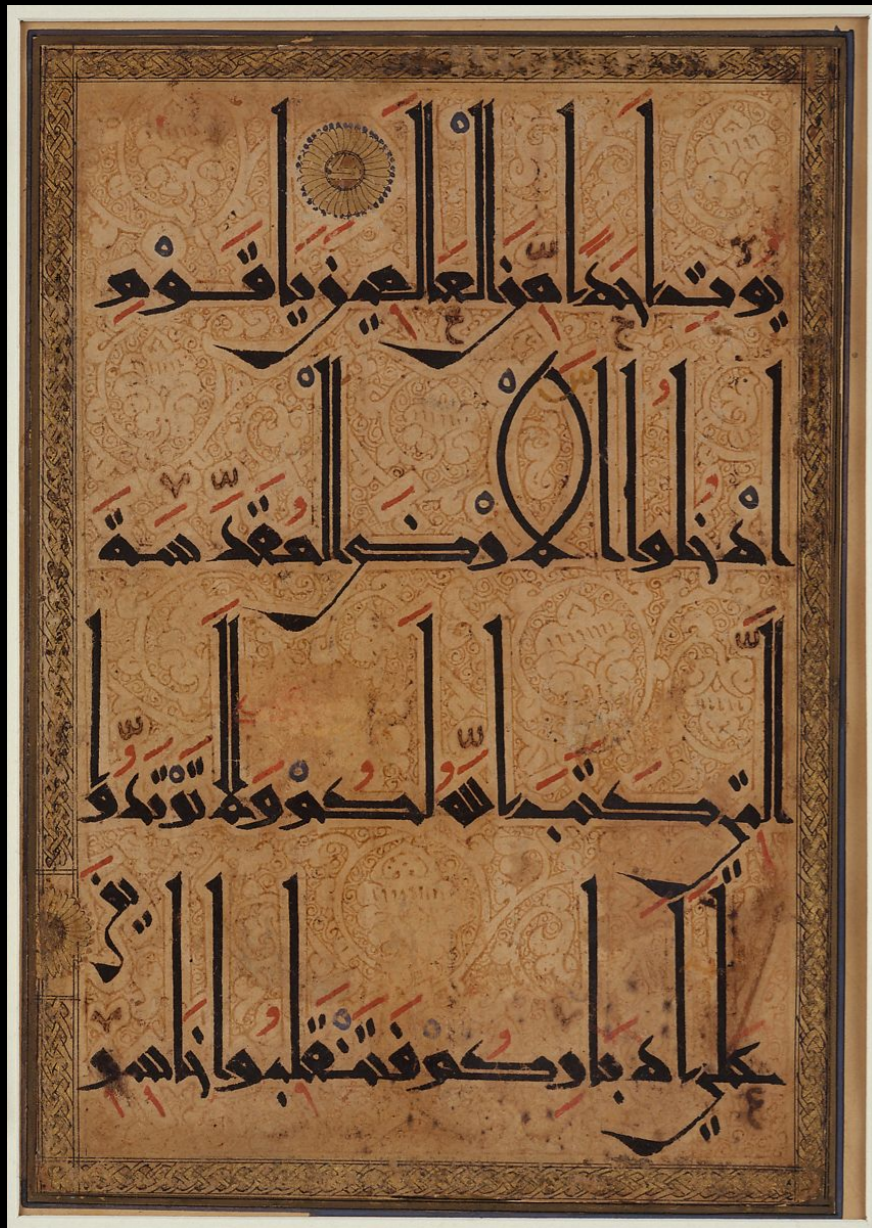 يُؤْتِ أَحَدًا مِّنَ الْعَالَمِينَ يَا قَوْمِ
ادْخُلُوا الْأَرْضَ الْمُقَدَّسَةَ
الَّتِي كَتَبَ اللَّهُ لَكُمْ وَلَا تَرْتَدُّوا
عَلَى أَدْبَارِكُمْ فَتَنْقَلِبُوا خَاسِرِينَ